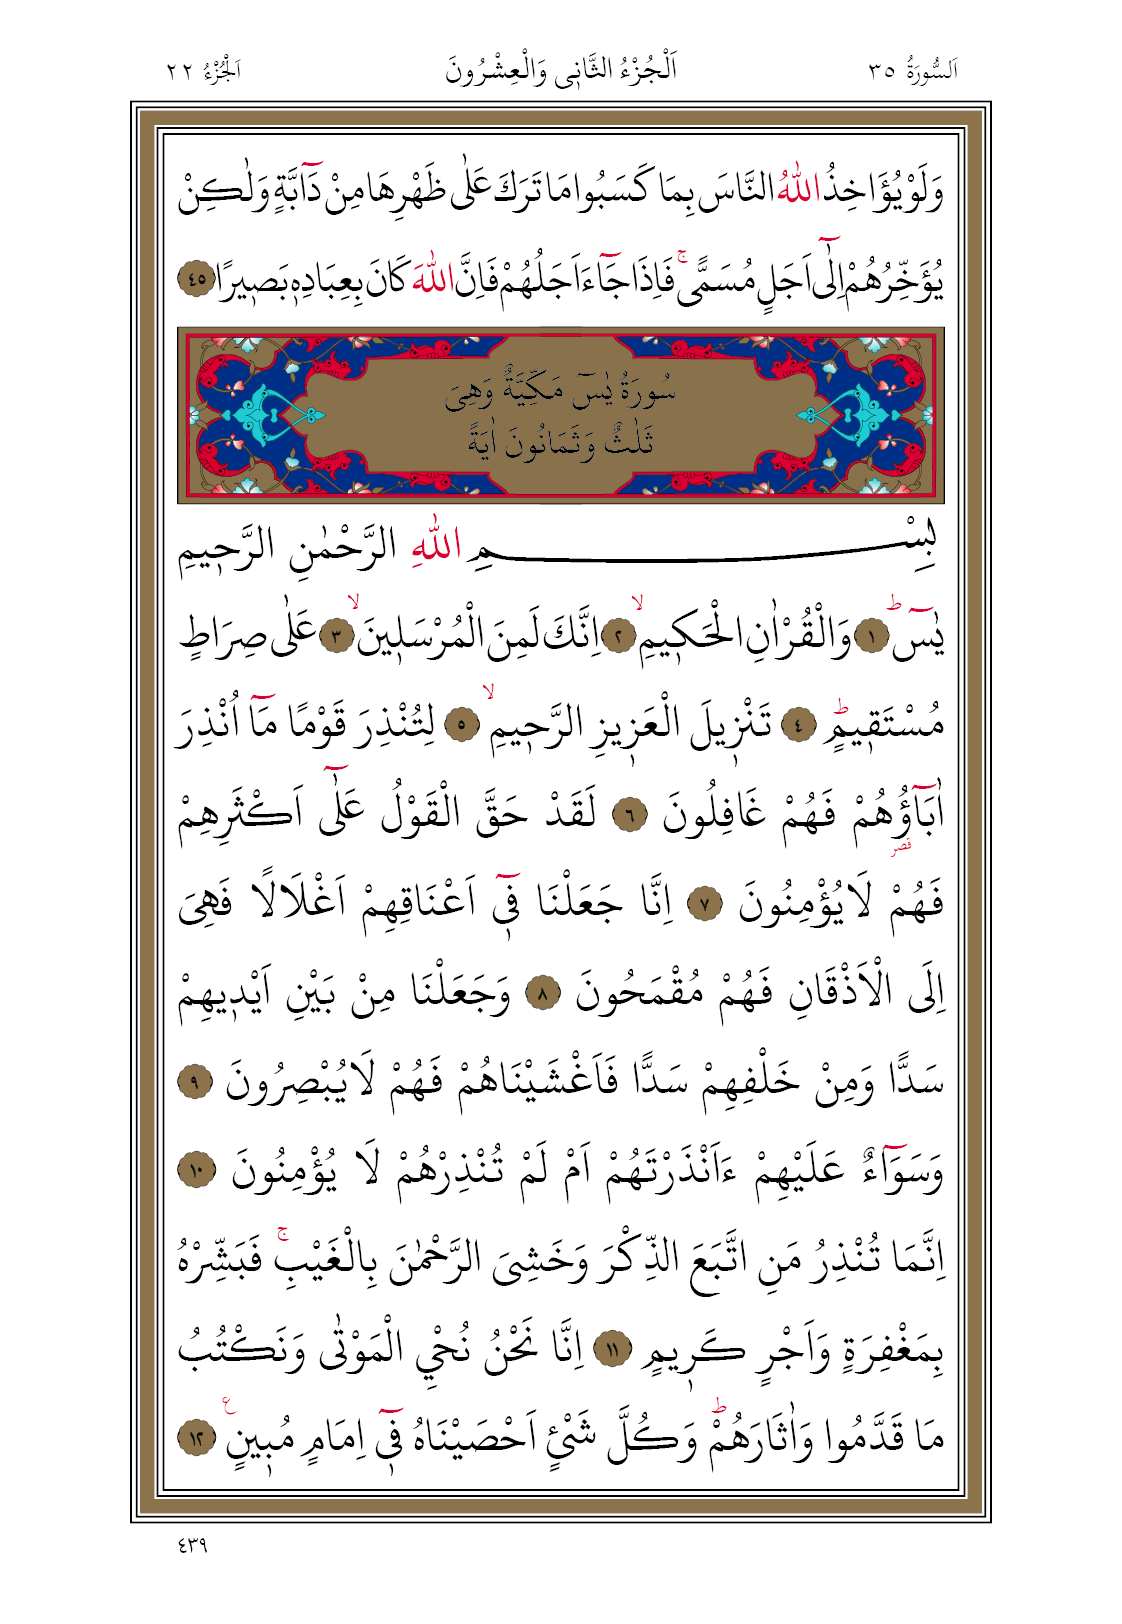 اَلسُّورَةُ ٣٥ اَلْجُزْءُ الثَّانٖى وَالْعِشْرُونَ اَلْجُزْءُ ٢٢
وَلَوْ يُؤَاخِذُ اللّٰهُ النَّاسَ بِمَا كَسَبُوا مَا تَرَكَ عَلٰى ظَهْرِهَا مِنْ دَٓابَّةٍ وَلٰكِنْ
يُؤَخِّرُهُمْ اِلٰٓى اَجَلٍ مُسَمًّىۚ فَاِذَا جَٓاءَ اَجَلُهُمْ فَاِنَّ اللّٰهَ كَانَ بِعِبَادِهٖ بَصٖيرًا ٤٥
سُورَةُ يٰسٓ مَكِّيَّةٌ وَهِىَ
ثَلٰثٌ وَثَمَانُونَ اٰيَةً
بِسْمِ اللّٰهِ الرَّحْمٰنِ الرَّحٖيمِ
يٰسٓۜ ١ وَالْقُرْاٰنِ الْحَكٖيمِۙ ٢ اِنَّكَ لَمِنَ الْمُرْسَلٖينَۙ ٣ عَلٰى صِرَاطٍ
مُسْتَقٖيمٍۜ ٤ تَنْزٖيلَ الْعَزٖيزِ الرَّحٖيمِۙ ٥ لِتُنْذِرَ قَوْمًا مَٓا اُنْذِرَ
اٰبَٓاؤُ۬هُمْ فَهُمْ غَافِلُونَ ٦ لَقَدْ حَقَّ الْقَوْلُ عَلٰٓى اَكْثَرِهِمْ
قصر
فَهُمْ لَا يُؤْمِنُونَ ٧ اِنَّا جَعَلْنَا فٖٓى اَعْنَاقِهِمْ اَغْلَالًا فَهِىَ
اِلَى الْاَذْقَانِ فَهُمْ مُقْمَحُونَ ٨ وَجَعَلْنَا مِنْ بَيْنِ اَيْدٖيهِمْ
سَدًّا وَمِنْ خَلْفِهِمْ سَدًّا فَاَغْشَيْنَاهُمْ فَهُمْ لَا يُبْصِرُونَ ٩
وَسَوَٓاءٌ عَلَيْهِمْ ءَاَنْذَرْتَهُمْ اَمْ لَمْ تُنْذِرْهُمْ لَا يُؤْمِنُونَ ١٠
اِنَّمَا تُنْذِرُ مَنِ اتَّبَعَ الذِّكْرَ وَخَشِىَ الرَّحْمٰنَ بِالْغَيْبِۚ فَبَشِّرْهُ
بِمَغْفِرَةٍ وَاَجْرٍ كَرٖيمٍ ١١ اِنَّا نَحْنُ نُحْيِ الْمَوْتٰى وَنَكْتُبُ
مَا قَدَّمُوا وَاٰثَارَهُمْۜ وَكُلَّ شَيْئٍ اَحْصَيْنَاهُ فٖٓى اِمَامٍ مُبٖينٍ ع ١٢
٤٣٩